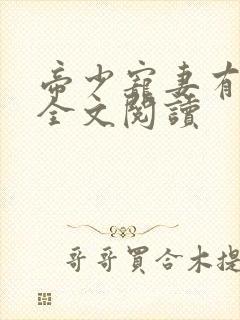 帝少寵妻有
全文閱讀
哥哥買合木提